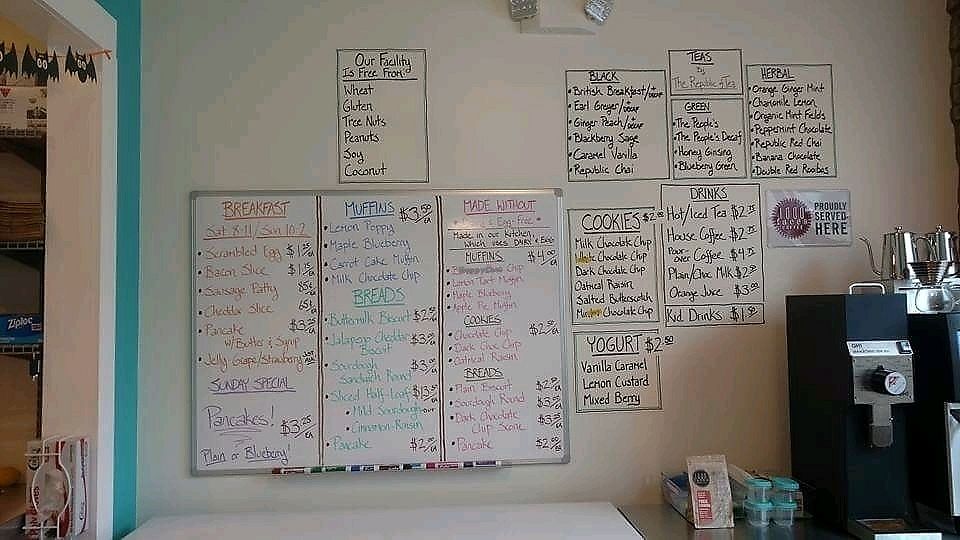 Our Facility
Is Free From:
Wheat
Gluten
Tree Nuts
Peanuts
Soy
Coconut
BLACK
• British Breakfast/+ decaf
• Earl Greyer/+ decaf
• Ginger Peach/+ decaf
• Blackberry Sage
• Caramel Vanilla
• Republic Chai
TEAS
By
The Republic of Tea
GREEN
• The People's
• The People's Decaf
• Honey Ginsing
• Blueberry Green
HERBAL
• Orange Ginger Mint
• Chamomile Lemon
• Organic Mint Fields
• Peppermint Chocolate
• Republic Red Chai
• Banana Chocolate
• Double Red Rooibos
BREAKFAST
Sat 8-11 / Sun 10-2
• Scrambled Egg
• Bacon Slice
• Sausage Patty
• Cheddar Slice
• Pancake
w/Butter & Syrup
• Jelly-Grape/Strawberry
SUNDAY SPECIAL
Pancakes! $3.25 ea
Plain or Blueberry!
MUFFINS $3.50 ea
• Lemon Poppy
• Maple Blueberry
• Carrot Cake Muffin
• Milk Chocolate Chip
BREADS
• Buttermilk Biscuit
• Jalapeño Cheddar
Biscuit
• Sourdough
Sandwich Round
• Sliced Half-Loaf
• Mild Sourdough-out
• Cinnamon-Raisin
• Pancake
MADE WITHOUT
Egg-Free
Made in our kitchen
which uses DAIRY & Egg
MUFFINS $4.00 ea
Chip
• Lemon Tart Muffin
• Maple Blueberry
• Apple Pie Muffin
COOKIES
• Chocolate Chip
• Dark Choc Chip
• Oatmeal Raisin
BREADS
• Plain Biscuit
• Sourdough Round
• Dark Chocolate
Chip Scone
• Pancake
COOKIES $2.00
Milk Chocolate Chip
Chocolate Chip
Dark Chocolate Chip
Oatmeal Raisin
Salted Butterscotch
Chocolate Chip
YOGURT $2.50
Vanilla Caramel
Lemon Custard
Mixed Berry
DRINKS
Hot/Iced Tea $2.75
House Coffee $2.75
Pour over Coffee $4.75
Plain/Choc Milk $2.00
Orange Juice $3.00
Kid Drinks $1.50
PROUDLY
SERVED
HERE
Ziploc